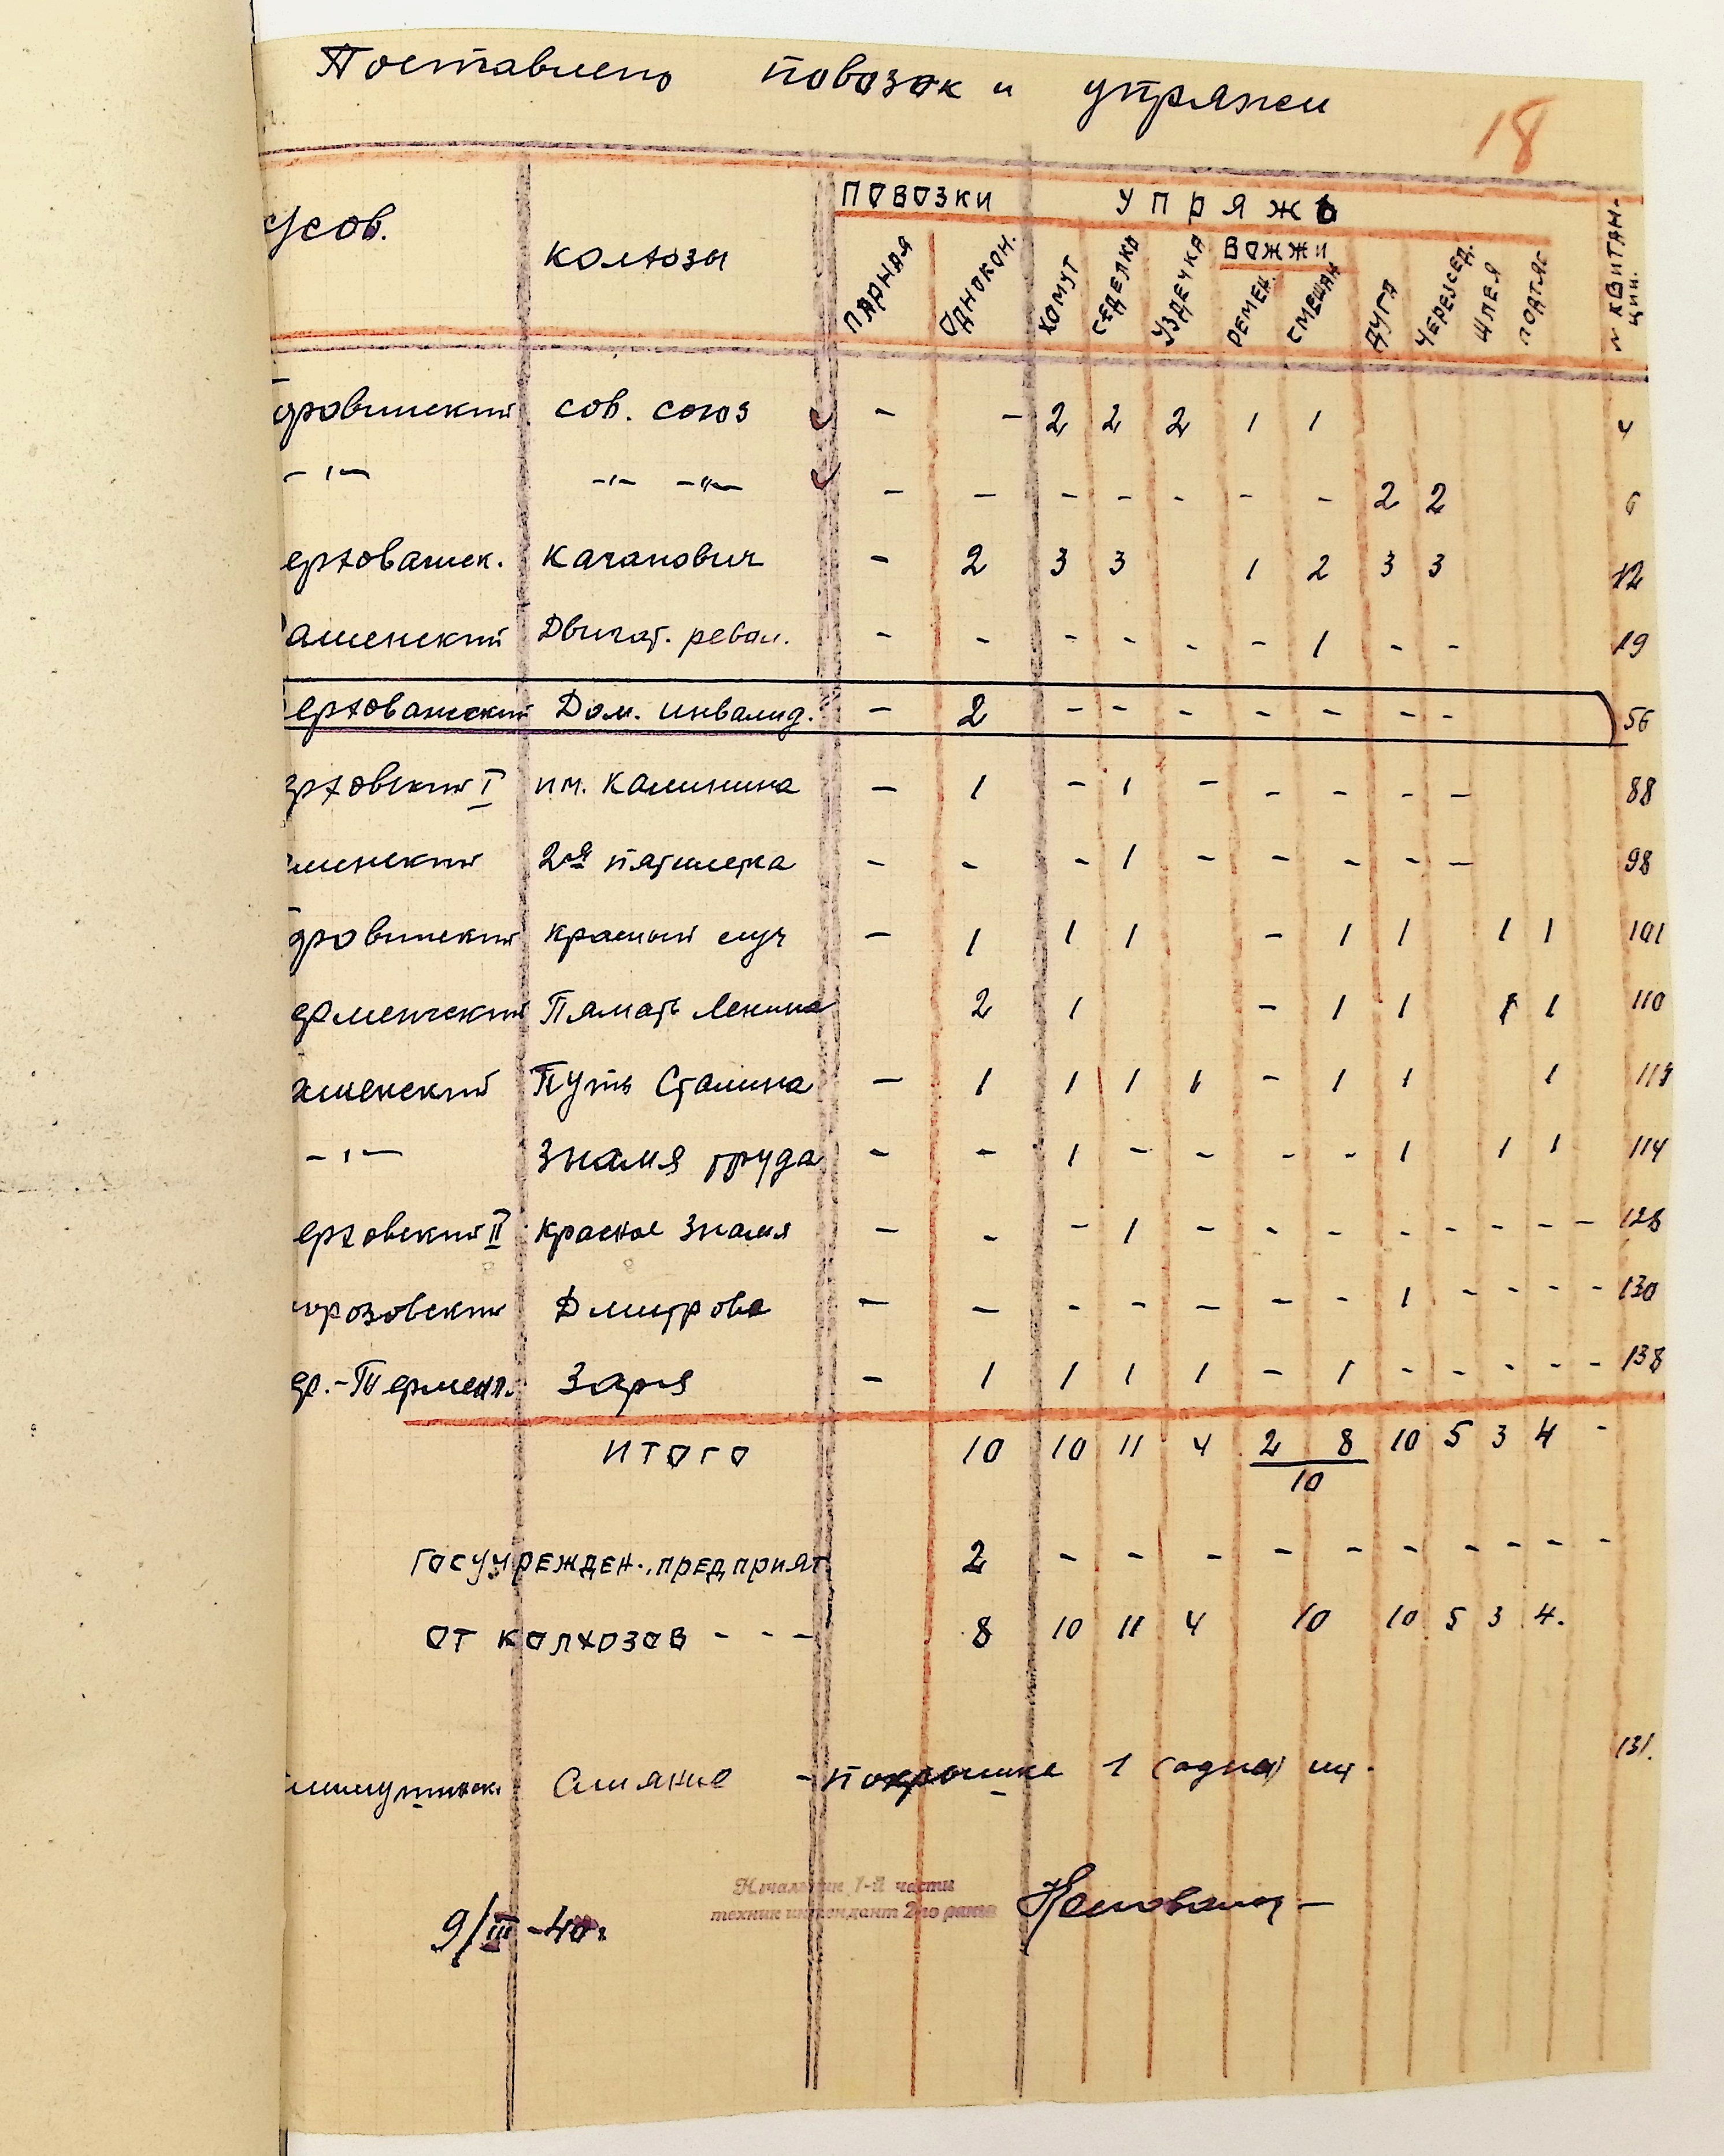 Поставлено повозок и упряжи
18
усов. колхозы ПОВОЗКИ УПРЯЖЬ
ПАРНАЯ ОДНОКОН. ХОМУТ СЕДЕЛКО УЗДЕЧКА ВОЖЖИ РЕМЕН. СМЕШАН ДУГА ЧЕРЕЗСЕД. ШЛЕЯ ПОДТЯГ № КВИТАНЦИИ.
дровинский сов. союз - - 2 2 2 1 1 4
-"- -"- -"- - - - - - - - 2 2 6
ерховашск. Каганович - 2 3 3 1 2 3 3 12
ашенский Двигат. револ. - - - - - - 1 - - 19
ерховажский Дом. инвалид. - 2 - - - - - - - 56
ерховский I им. Калинина - 1 - 1 - - - - - 88
шенский 2ая пятилетка - - - 1 - - - - - 98
дровинский красный луч - 1 1 1 - 1 1 1 1 101
ерменгский Память Ленина 2 1 - 1 1 1 1 110
ашенский Путь Сталина - 1 1 1 1 - 1 1 1 113
-"- Знамя труда - - 1 - - - - 1 1 1 114
ерховский II красное знамя - - - 1 - - - - - - - - 128
морозовский Дмитрова - - - - - - - 1 - - - - 130
ер.-Терменг. Заря - 1 1 1 1 - 1 - - - - - 138
ИТОГО 10 10 11 4 2 8 10 5 3 4 -
10
ГОСУЧРЕЖДЕН., ПРЕДПРИЯТ 2 - - - - - - - - - -
ОТ КОЛХОЗОВ - - - 8 10 11 4 10 10 5 3 4.
131.
Слияние - покрышка 1 (одна) шт.
Начальник 1-й части
техник интендант 2-го ранга
9/III-40г.